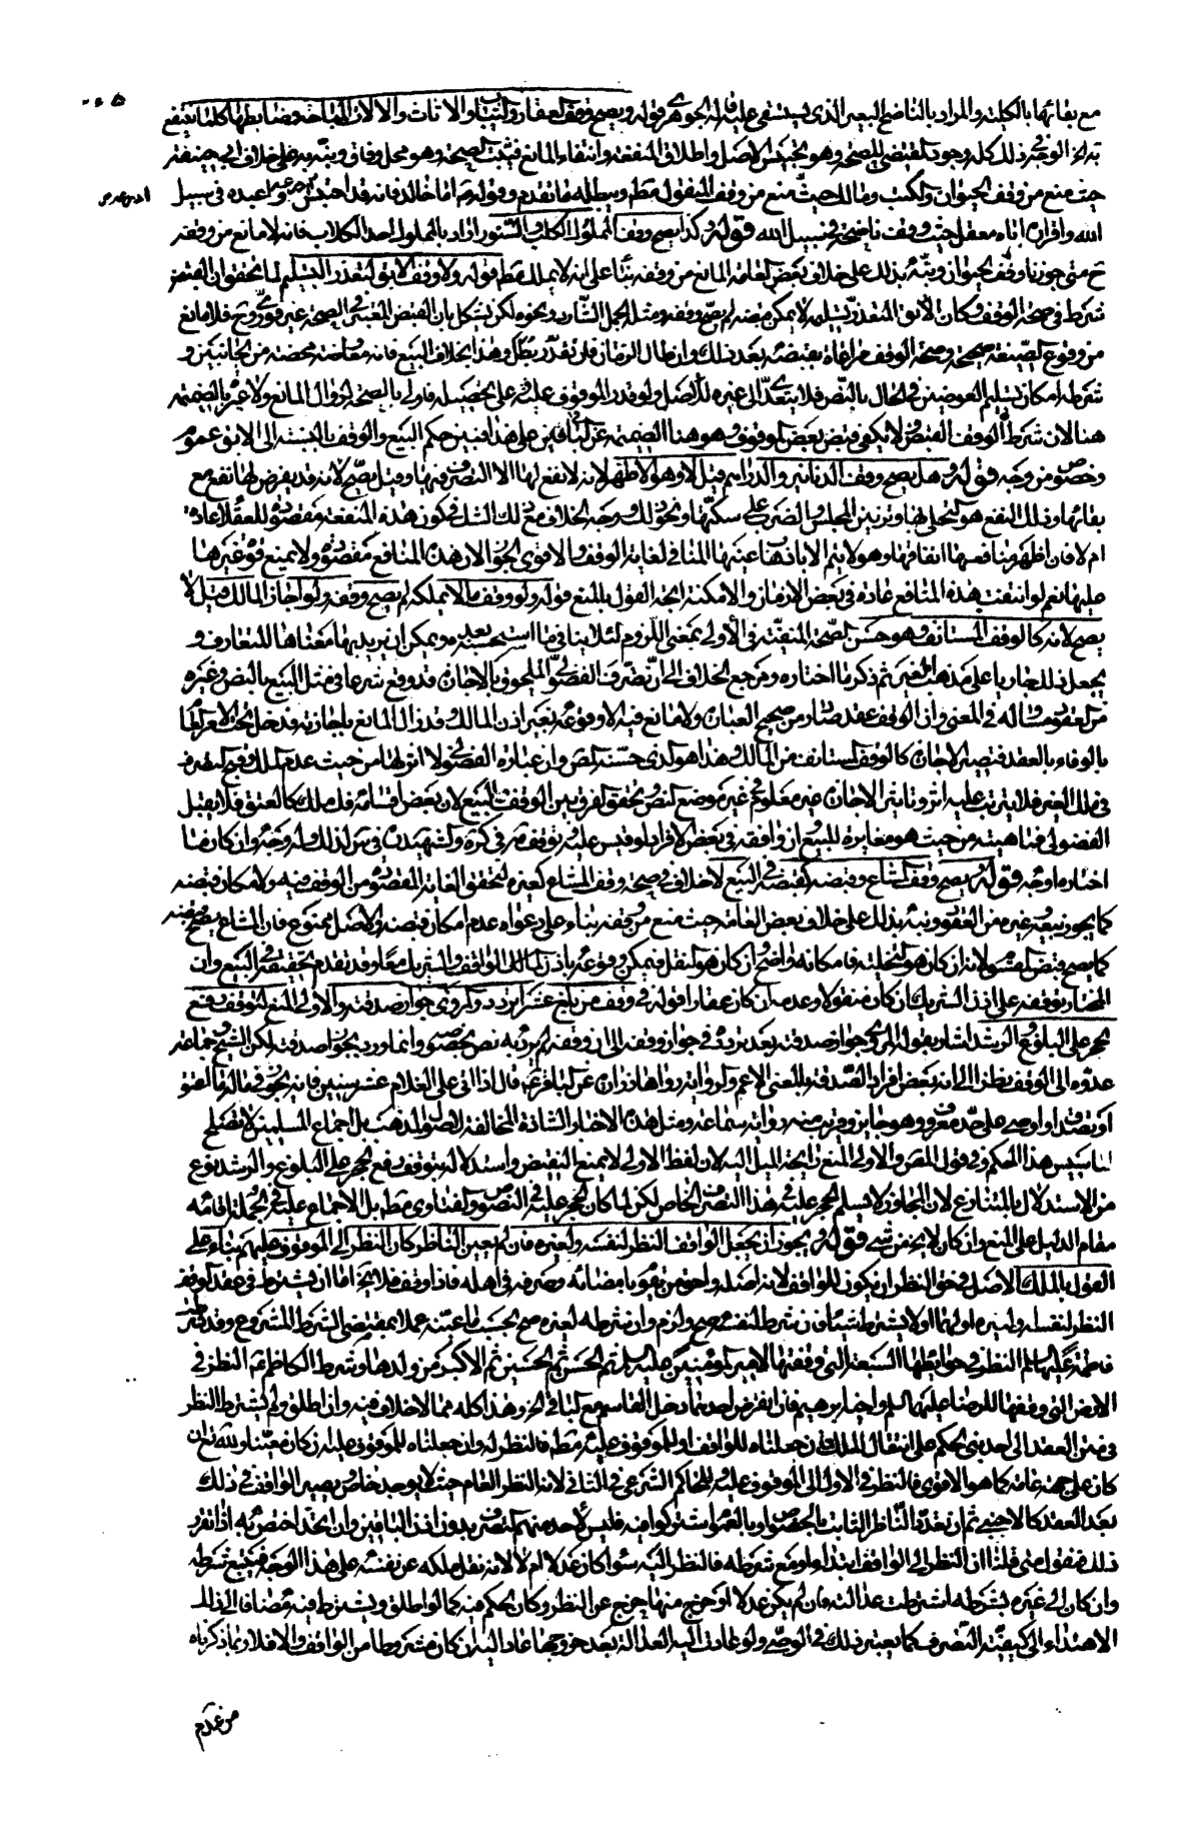 مع بقائها بالكلية والمراد بالناضح البعير الذي يستقى عليه قاله الجوهري قوله ويصح وقف العقار والثياب والاثاث والالات المباحة وضابطها كلما ينتفع
به الخ الوجه في ذلك كله وجود المقتضي للصحة وهو تحبيس الاصل واطلاق المنفعة وانتفاء المانع فيثبت الصحة وهو محل وفاق ونبه به على خلاف ابي حنيفة
حيث منع من وقف الحيوان والكتب ومالك حيث منع من وقف المنقول مطلقا ويبطله ما تقدم وقوله ص اما خالد فانه قد احتبس ادرعه واعبده في سبيل
الله واقراره ام معقل حيث وقفت ناضحها في سبيل الله قوله وكذا يصح وقف المملوك الكلب والسنور اراد بالمملوك احد الكلاب فانه لا مانع من وقفه
ح متى جوزنا وقف الحيوان ونبه بذلك على خلاف بعض العامة المانع من وقفه بناء على انه لا يملك مطلقا قوله ولا وقف الابق لتعذر التسليم لما تحقق ان القبض
شرط في صحة الوقف وكان الابق المتعذر تسليمه لا يمكن قبضه لم يصح وقفه ومثله الجمل الشارد ونحوه لكن يشكل بان القبض المعتبر في الصحة غير فوري وح فلا مانع
من وقوع الصيغة صحيحة وصحة الوقف مراعاة بقبضه بعد ذلك وان طال الزمان فان تعذر بطل وهذا بخلاف البيع فانه معاوضة محضة من الجانبين و
شرطه امكان تسليم العوضين في الحال بالنص فلا يتعدى الى غيره للاصل ولو قدر الموقوف عليه على تحصيله فاولى بالصحة لزوال المانع ولا عبرة بالضميمة
هنا لان شرط الوقف القبض ولا يكفي قبض بعض الموقوف وهو هنا الضميمة عن الباقي فبين هذا فبين حكم البيع والوقف بالنسبة الى الابق عموم
وخصوص من وجه قوله وهل يصح وقف الدنانير والدراهم قيل لا وهو الاظهر لانه لا نفع لها الا التصرف فيها وقيل يصح لانه قد يفرض لها نفع مع
بقائها وذلك النفع هو التحلي بها وتزيين المجلس والضرب على سكتها ونحو ذلك ووجه الخلاف مع ذلك الشك في كون هذه المنفعة مقصودة للعقلاء عادة
ام لا فان اظهر منافعها انفاقها وهو لا يتم الا باذهاب عينها المنافي لغاية الوقف والاقوى الجواز لان هذه المنافع مقصودة ولا يمنع قوة غيرها
عليها نعم لو انتفت هذه المنافع عادة في بعض الازمان والامكنة اتجه القول بالمنع قوله ولو وقف ما لا يملكه لم يصح وقفه ولو اجاز المالك قيل لا
يصح لانه كالوقف المستانف وهو حسن الصحة المنفية في الاولى بمعنى اللزوم لئلا ينافي ما استحسنه بعد ويمكن ان يريد بها معناها المتعارف و
يجعل ذلك جاريا على مذهب الغير ثم ذكر ما اختاره ومرجع الخلاف الى ان تصرف الفضولي الملحوق بالاجازة قد وقع شرعا في مثل البيع بالنص وغيره
من العقود مساو له في المعنى وان الوقف عقد صادر من صحيح العبارة ولا مانع فيه الا وقوعه بغير اذن المالك وقد زال المانع باجازته فدخل تحت الامر العام
بالوفاء بالعقد فتصير الاجازة كالوقف المستانف من المالك وهذا هو الذي حسنه المص وان عبارة الفضولي لا اثر لها من حيث عدم الملك وقبح التصرف
في ملك الغير فلا يترتب عليه اثر وتاثير الاجازة غير معلوم في غير موضع النص وتحقق الفرق بين الوقف والبيع لان بعض اقسامه فك ملك كالعتق فلا يقبل
الفضولي فماهيته من حيث هو مغايرة للبيع وان وافقه في بعض الافراد لو قيس عليه وتوقف في كره والشهيد في س لذلك وله وجه وان كان ما
اختاره اوجه قوله ويصح وقف المشاع وقبضه كقبضه في البيع لا خلاف في صحة وقف المشاع كغيره لتحقق الغاية المقصودة من الوقف فيه ولامكان قبضه
كما يجوز بيعه وغيره من العقود ونبه بذلك على خلاف بعض العامة حيث منع من وقفه بناء على دعواه عدم امكان قبضه والاصل ممنوع فان المشاع يصح قبضه
كما يصح قبض المقسوم لانه ان كان هو التخلية فامكانه واضح وان كان هو النقل فيمكن وقوعه باذن المالك الواقف والشريك معا وقد تقدم تحقيقه في البيع وان
المختار توقفه على اذن الشريك ان كان منقولا وعدمه ان كان عقارا قوله وفي وقف من بلغ عشرا تردد والمروي جواز صدقته والاولى المنع لتوقف رفع
الحجر على البلوغ والرشد اشار بقوله المروي جواز صدقته بعد تردده في جواز وقفه الى ان وقفه لم يرد به نص بخصوصه وانما ورد بجواز صدقته لكن الشيخ وجماعة
عدوه الى الوقف نظرا الى انه بعض افراد الصدقة بالمعنى الاعم والرواية رواها زرارة عن الباقر ع قال اذا اتى على الغلام عشر سنين فانه يجوز في ماله ما اعتق
او تصدق او اوصى على حد معروف وهو جايز وقريب منه رواية سماعة ومثل هذه الاخبار الشاذة المخالفة لاصول المذهب بل اجماع المسلمين لا تصلح
لتاسيس هذا الحكم وفي قول المص والاولى المنع رايحة الميل اليه لان لفظ الاولى لا يمنع النقيض واستدلاله بتوقف رفع الحجر على البلوغ والرشد نوع
من الاستدلال بالمتنازع لان المجوز لا يسلم الحجر عليه في هذا التصرف الخاص لكن لما كان الحجر عليه في النصوص والفتاوى مطلقا بل الاجماع عليه في الجملة اقامه
مقام الدليل على المنع وان كان لا يخلو من شيء قوله ويجوز ان يجعل الواقف النظر لنفسه ولغيره فان لم يعين الناظر كان النظر الى الموقوف عليهم بناء على
القول بالملك الاصل في حق النظر ان يكون للواقف لانه اصله واحق من يقوم بامضائه وصرفه في اهله فاذا وقف فلا يخ اما ان يشترط في عقد الوقف
النظر لنفسه او لغيره او لهما او لا يشترط شيئا فان شرط لنفسه صح ولزم وان شرطه لغيره صح بحسب ما عينه عملا بمقتضى الشرط المشروع وقد شرطت
فاطمة عليها السلم النظر في حوائطها السبعة التي وقفتها لامير المؤمنين عليه السلم ثم الحسن ثم الحسين ثم الاكبر من ولدها وشرط الكاظم ع النظر في
الارض التي وقفها للرضا عليهما السلم واخيه ابرهيم فان انقرض احدهما دخل القاسم مع الباقي الخ وهذا كله مما لا خلاف فيه وان اطلق ولم يشترط النظر
في متن العقد الى احد بني الحكم على انتقال الملك فان جعلناه للواقف او للموقوف عليه مطلقا فالنظر له وان جعلناه للموقوف عليه ان كان معينا ولله تع ان
كان على جهة عامة كما هو الاقوى فالنظر في الاول الى الموقوف عليه وللحاكم الشرعي في الثاني لانه النظر العام حيث لا يوجد خاص ويصير الواقف في ذلك
بعد العقد كالاجنبي ثم ان تعدد الناظر الثابت بالخصوص او بالعموم اشتركوا فيه فليس لاحد منهم التصرف بدون اذن الباقين وان اتحد اختص به اذا تقرر
ذلك فنقول متى قلنا ان النظر الى الواقف ابتداء او مع شرطه فالنظر اليه سواء كان عدلا ام لا لانه نقل ملكه عن نفسه على هذا الوجه فيتبع شرطه
وان كان الى غيره بشرطه اشترطت عدالته فان لم يكن عدلا او خرج منها خرج عن النظر وكان الحكم فيه كما لو اطلق ويشترط فيه مضافا الى ذلك
الاهتداء الى كيفية التصرف كما يعتبر ذلك في الوصي ولو عادت اليه العدالة بعد خروجها عاد اليه ان كان مشروطا من الواقف والا فلا وبما ذكرناه
من عدم